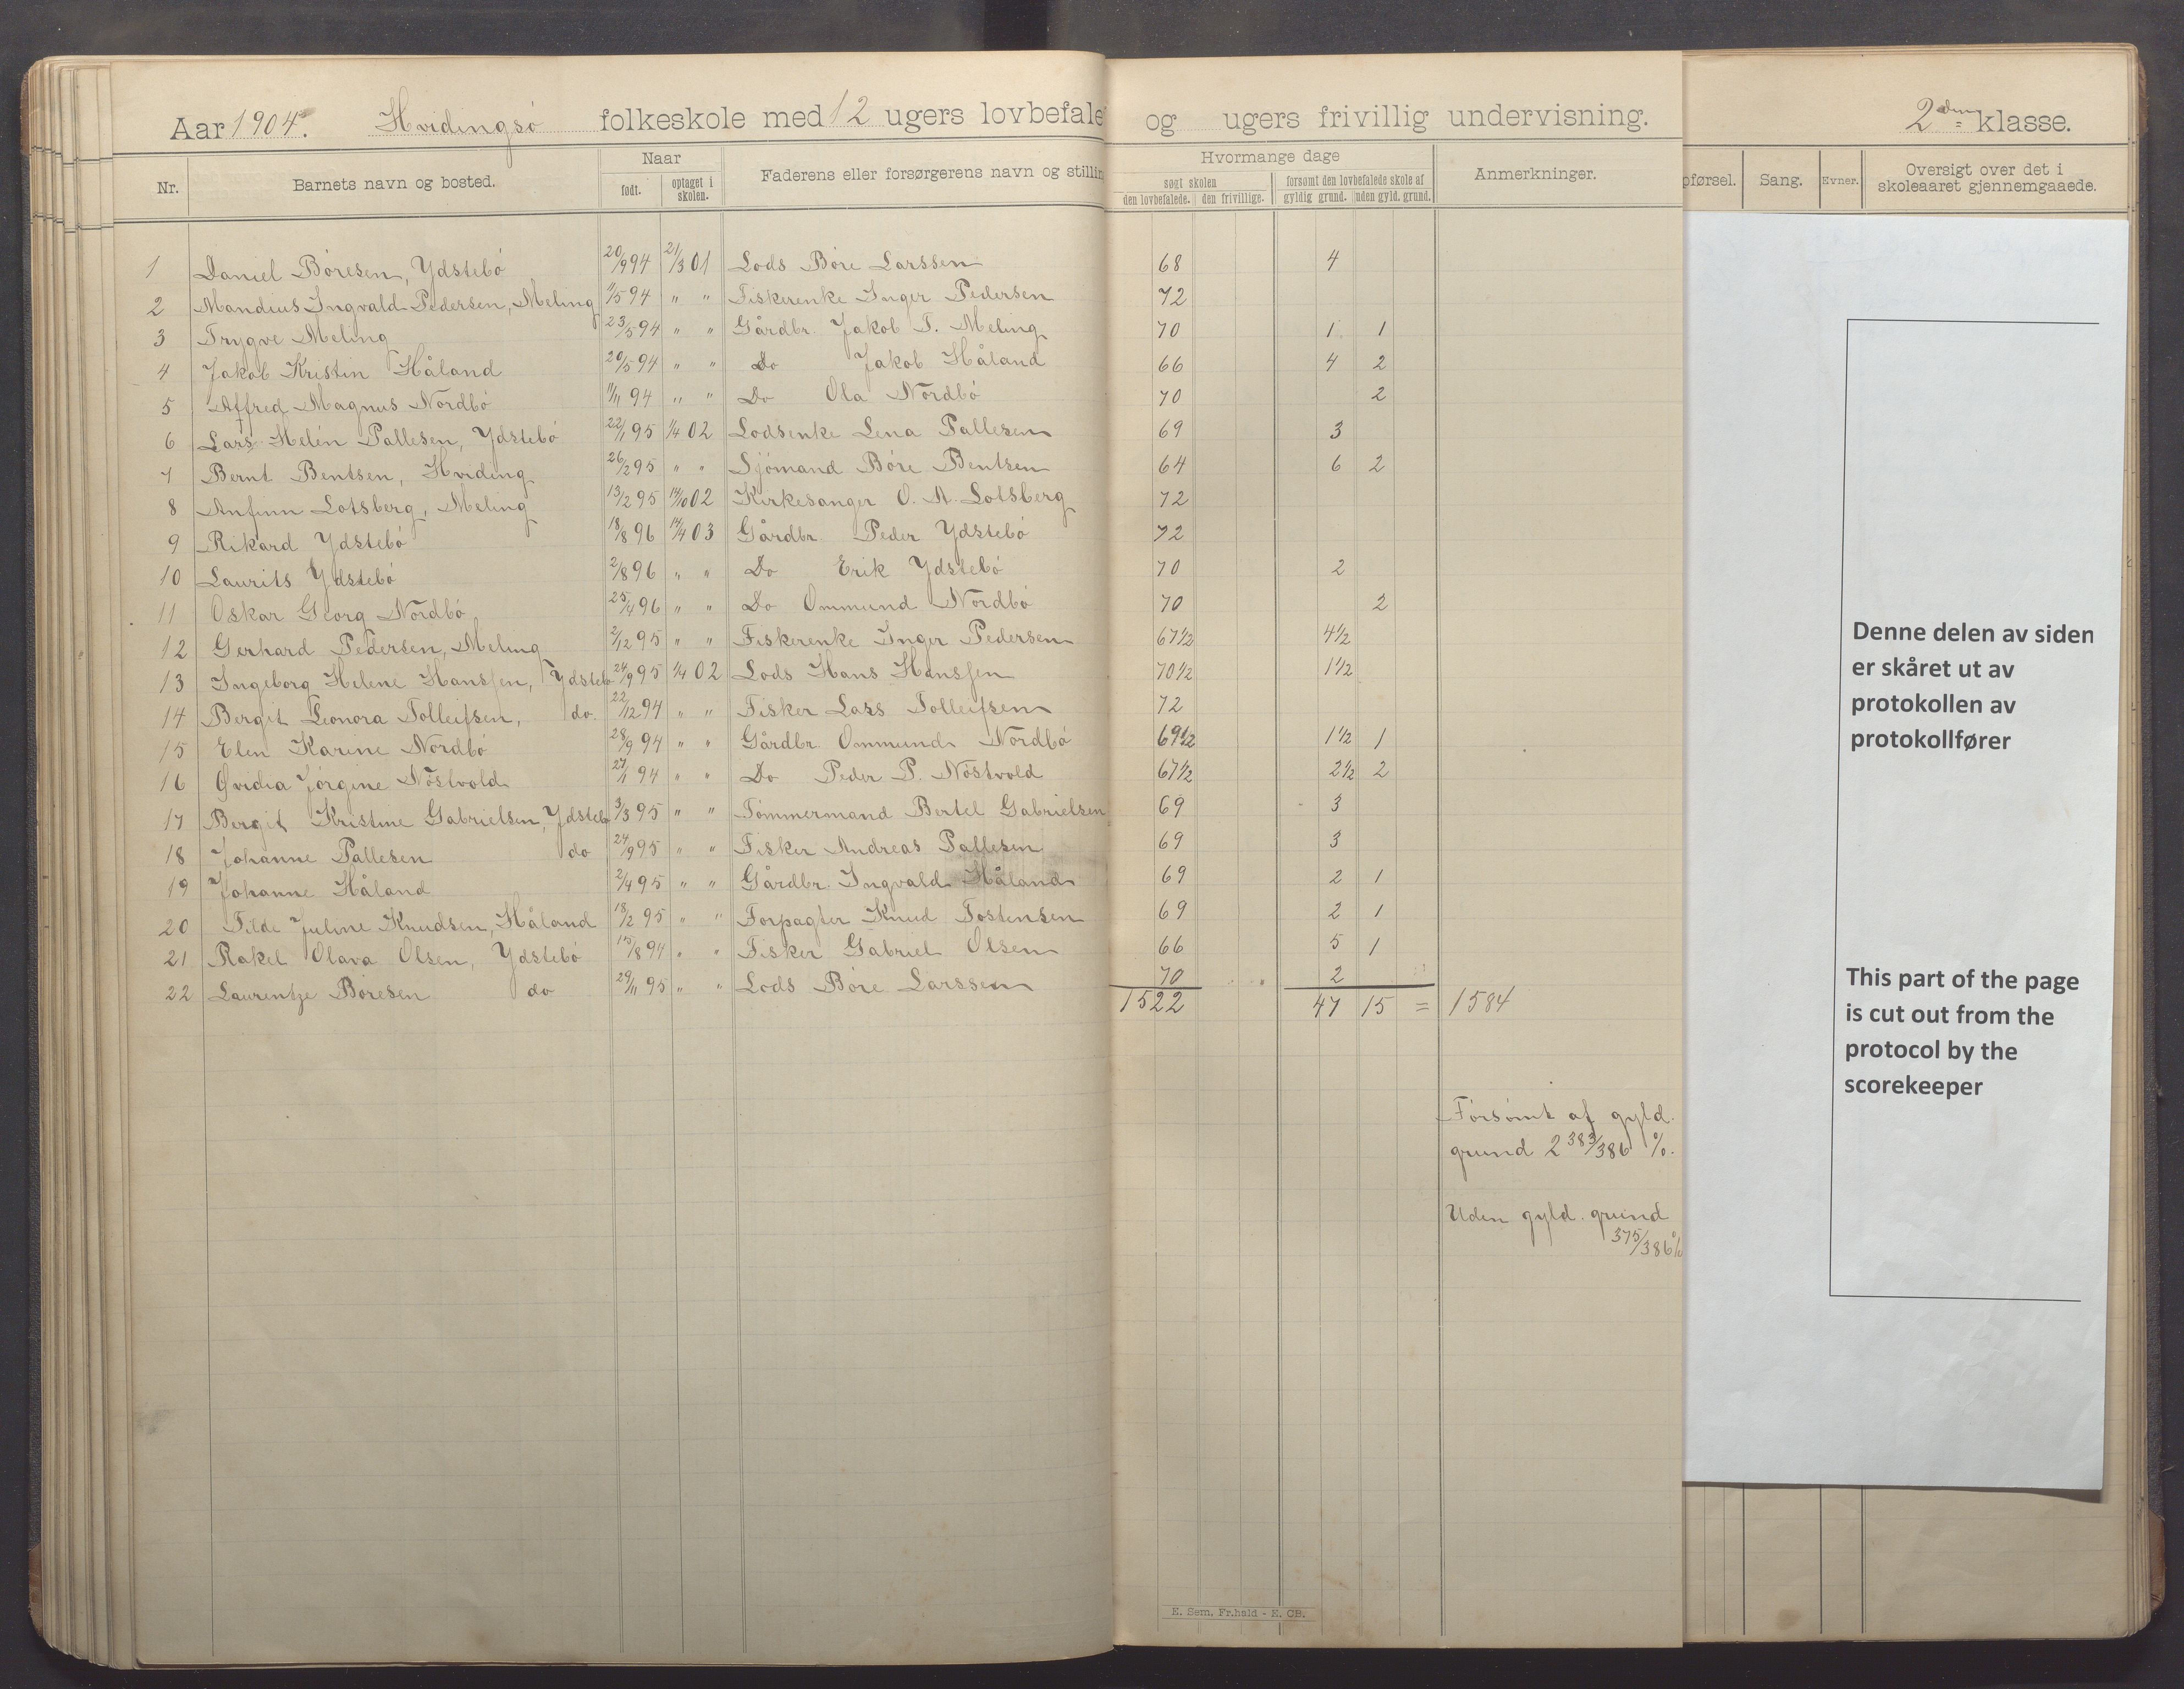 Aar 1904. Hvidingsö folkeskole med 12 ugers lovbefale og ugers frivillig undervisning. 2den klasse.
Nr. Barnets navn og bosted. Naar født. optaget i skolen. Faderens eller forsørgerens navn og stillin Hvormange dage søgt skolen den lovbefalede. den frivillige. forsømt den lovbefalede skole af gyldig grund. uden gyld. grund. Anmerkninger. pførsel. Sang. Evner. Oversigt over det i skoleaaret gjennemgaaede.
1 Daniel Böresen, Ydstebö 20/9 94 21/3 01 Lods Böre Larssen 68 4
2 Mandius Ingvald Pedersen, Meling /5 94 " " Fiskerenke Inger Pedersen 72
3 Trygve Meling 23/5 94 " " Gårdbr. Jakob T. Meling 70 1 1
4 Jakob Kristin Håland 20/5 94 " " Do Jakob Håland 66 4 2
5 Alfred Magnus Nordbö 11/11 94 " " Do Ola Nordbö 70 2
6 Lars Helén Pallesen, Ydstebö 22/1 95 1/4 02 Lodsenke Lena Pallesen 69 3
7 Bernt Bentsen, Hviding 26/2 95 " " Sjömand Böre Bentsen 64 6 2
8 Anfinn Lotsberg, Meling 13/2 95 14/10 02 Kirkesanger O. A. Lotsberg 72
9 Rikard Ydstebö 18/8 96 14/4 03 Gårdbr. Peder Ydstebö 72
10 Laurits Ydstebö 2/8 96 " " Do Erik Ydstebö 70 2
11 Oskar Georg Nordbö 25/4 96 " " Do Ommund Nordbö 70 2
12 Gerhard Pedersen, Meling 2/12 95 " " Fiskerenke Inger Pedersen 67 1/2 4 1/2
13 Ingeborg Helene Hanssen, Ydstebö 24/9 95 1/4 02 Lods Hans Hanssen 70 1/2 1 1/2
14 Bergit Leonora Tolleifsen, do. 22/12 94 " " Fisker Lars Tolleifsen 72
15 Elen Karine Nordbö 28/9 94 " " Gårdbr. Ommund Nordbö 69 1/2 1 1/2 1
16 Jörgine Nöstvold 27/1 94 " " Do Peder P. Nöstvold 67 1/2 2 1/2 2
17 Bergit Kristine Gabrielsen, Ydstebö 3/3 95 " " Tömmermand Bertel Gabrielsen 69 3
18 Johanne Pallesen do 24/9 95 " " Fisker Andreas Pallesen 69 3
19 Johanne Håland 2/4 95 " " Gårdbr. Ingvald Håland 69 2 1
20 Tilde Juline Knudsen, Håland 18/2 95 " " Forpagter Knud Tostensen 69 2 1
21 Rakel Olava Olsen, Ydstebö 15/8 94 " " Fisker Gabriel Olsen 66 5 1
22 Laurentze Böresen do 29/11 95 " " Lods Böre Larssen 70 " " 2
1522 47 15 = 1584
Forsömt af gyld.
grund 2 383/386 %.
Uden gyld. grund
375/386 %
E. Sem, Fr.hald - E. CB.
Denne delen av siden
er skåret ut av
protokollen av
protokollfører
This part of the page
is cut out from the
protocol by the
scorekeeper